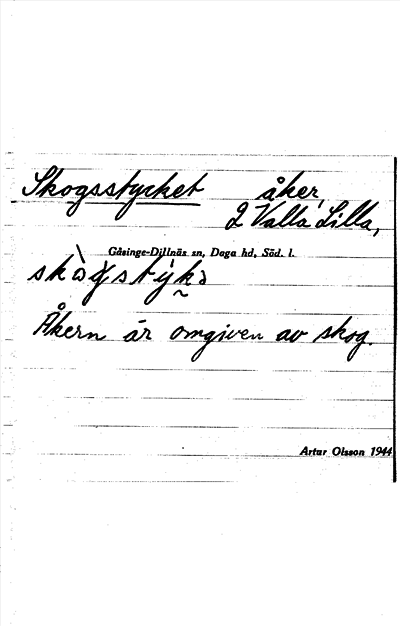 Skogsstycket åker,
2 Valla Lilla,
Gåsinge-Dillnäs sn, Daga hd, Söd. l.
Åkern är omgiven av skog.
Artur Olsson 1944